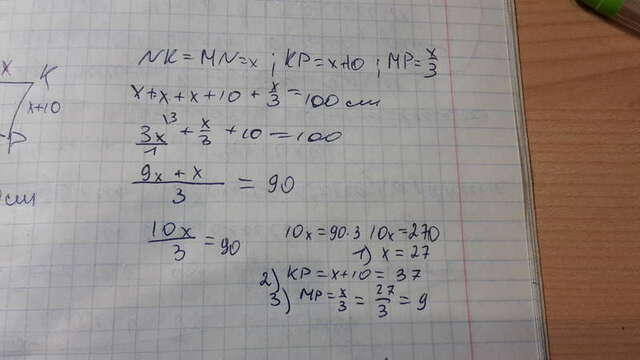 x
K
x+10
P
cm
NK = MN = x ; KP = x+10 ; MP = x/3
x + x + x + 10 + x/3 = 100 cm
3x/1 ^3 + x/3 + 10 = 100
(9x + x)/3 = 90
10x/3 = 90   10x = 90·3   10x = 270
1) x = 27
2) KP = x + 10 = 37
3) MP = x/3 = 27/3 = 9